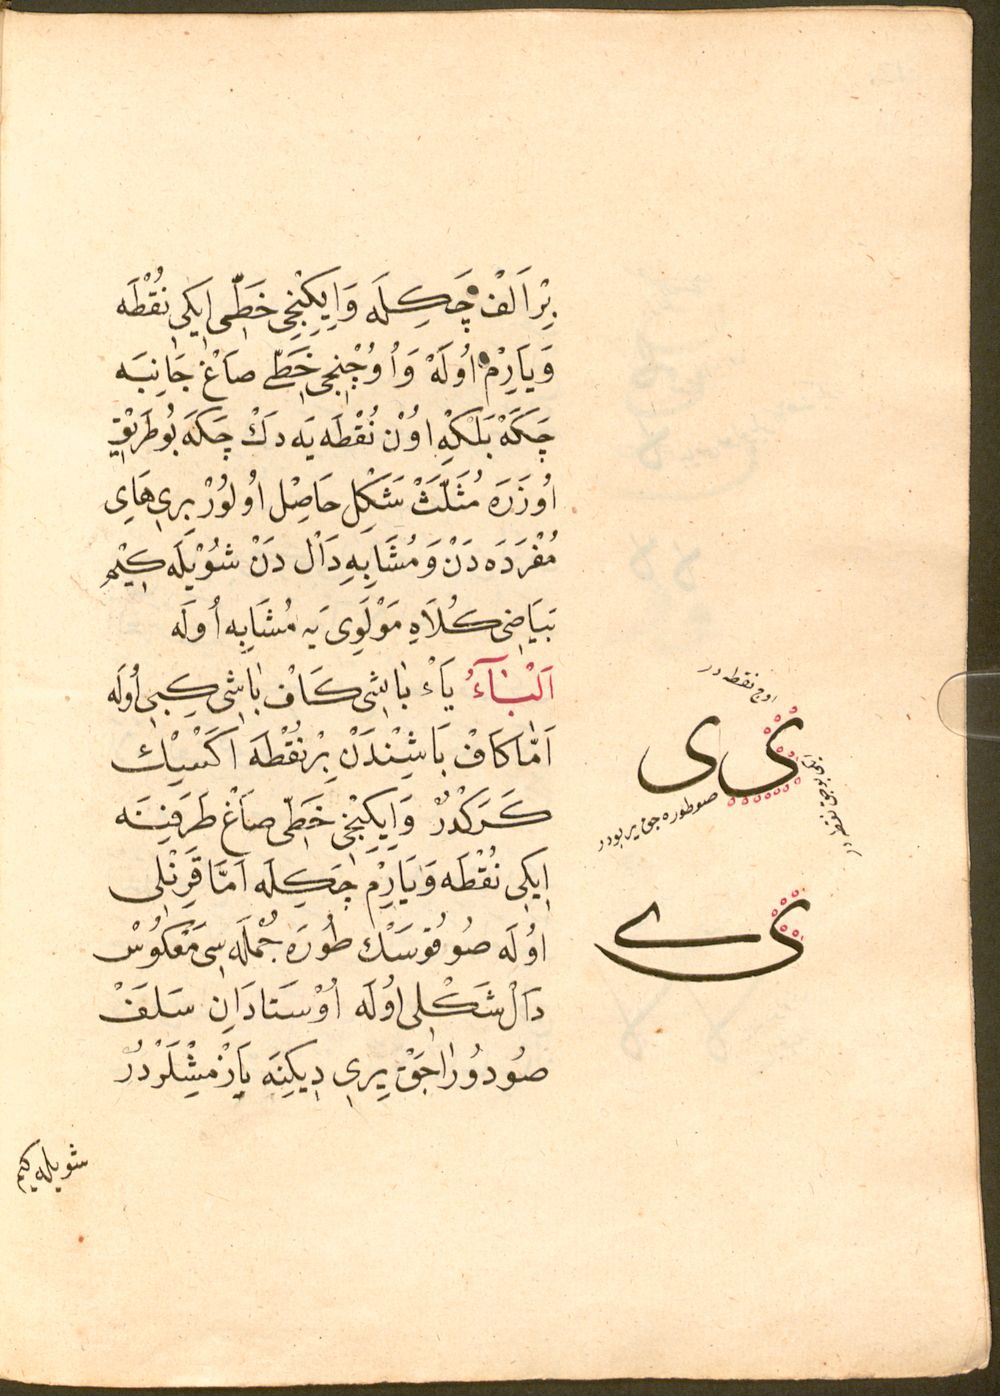 بِرْ اَلَفْ چَكِلَه وَاِيكِنْجِى خَطِّى اِيكِى نُقْطَه
وَيَارِمْ اُولَه وَاُوچُنْجِى خَطِّى صَاغْ جَانِبَه
چَكَه بَلْكِه اوُنْ نُقْطَه يَه دَكْ چَكَه بُو طَرِيقْ
اُوزَرَه مُثَلَّثْ شَكِلْ حَاصِلْ اُولُورْ بِرِى هَاىِ
مُفْرَدَه دَنْ وَمُشَابِهِ دَالْ دَنْ شُوْيلَه كِيْمِ
بَيَاضِى كُلَاهِ مَوْلَوِى يَه مُشَابِه اُولَه
اَلْيَآءُ يَاءْ بَاشِى كَافْ بَاشِى كِبِى اُولَه
اَمَّا كَافْ بَاشِنْدَنْ بِرْ نُقْطَه اَكْسِيْك
كَرَكْدُرْ وَاِيكِنْجِى خَطِّى صَاغْ طَرَفِنَه
اِيكِى نُقْطَه وَيَارِمْ چَكِلَه اَمَّا قَرِنْلِى
اوُلَه صُو قُوسَنْك طُورَه جُمْلَه سِى مَعْكُوسْ
دَالْ شَكْلِى اُولَه اُوْسْتَادَانِ سَلَفْ
صُو دُورَاجَقْ يِرِى دِيكِنَه يَازْمِشْلَرْدُرْ
شويله كيم
اوچ نقطه در
صو طوره جق ير بودر